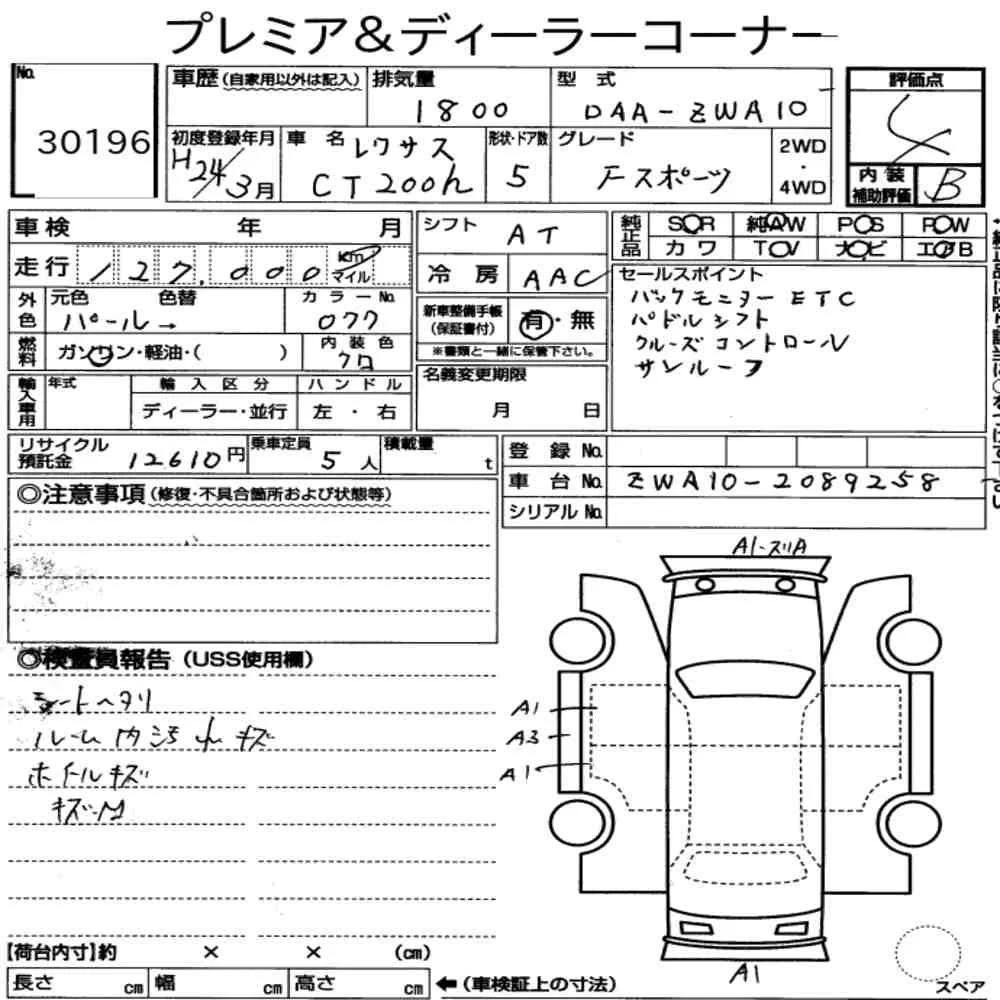 プレミア&ディーラーコーナー
No.
30196
車歴(自家用以外は記入)
排気量
1800
型 式
DAA-ZWA10
評価点
4
初度登録年月
H24/3月
車 名
レクサス
CT200h
形状・ドア数
5
グレード
Fスポーツ
2WD
・
4WD
内装
補助評価
B
車検 年 月
走行 127,000 km
マイル
シフト AT
冷房 AAC
純正品
SR 純AW PS PW
カワ TV ナビ エアB
外色
元色 色替 カラーNo.
パール→ 077
燃料
ガソリン・軽油・( )
内装色
クロ
新車整備手帳
(保証書付)
有・無
※書類と一緒に保管下さい。
セールスポイント
バックモニター ETC
パドルシフト
クルーズコントロール
サンルーフ
輸入車用
年式
輸入区分
ディーラー・並行
ハンドル
左・右
名義変更期限
月 日
リサイクル
預託金 12610円
乗車定員
5人
積載量
t
登録 No.
車台 No. ZWA10-2089258
シリアル No.
◎注意事項(修復・不具合箇所および状態等)
◎検査員報告(USS使用欄)
シートヘタリ
ルーム内汚れキズ
ホイールキズ
A1-スリA
A1
A3
A1
A1
スペア
【荷台内寸】約 × × (cm)
長さ cm 幅 cm 高さ cm ←(車検証上の寸法)